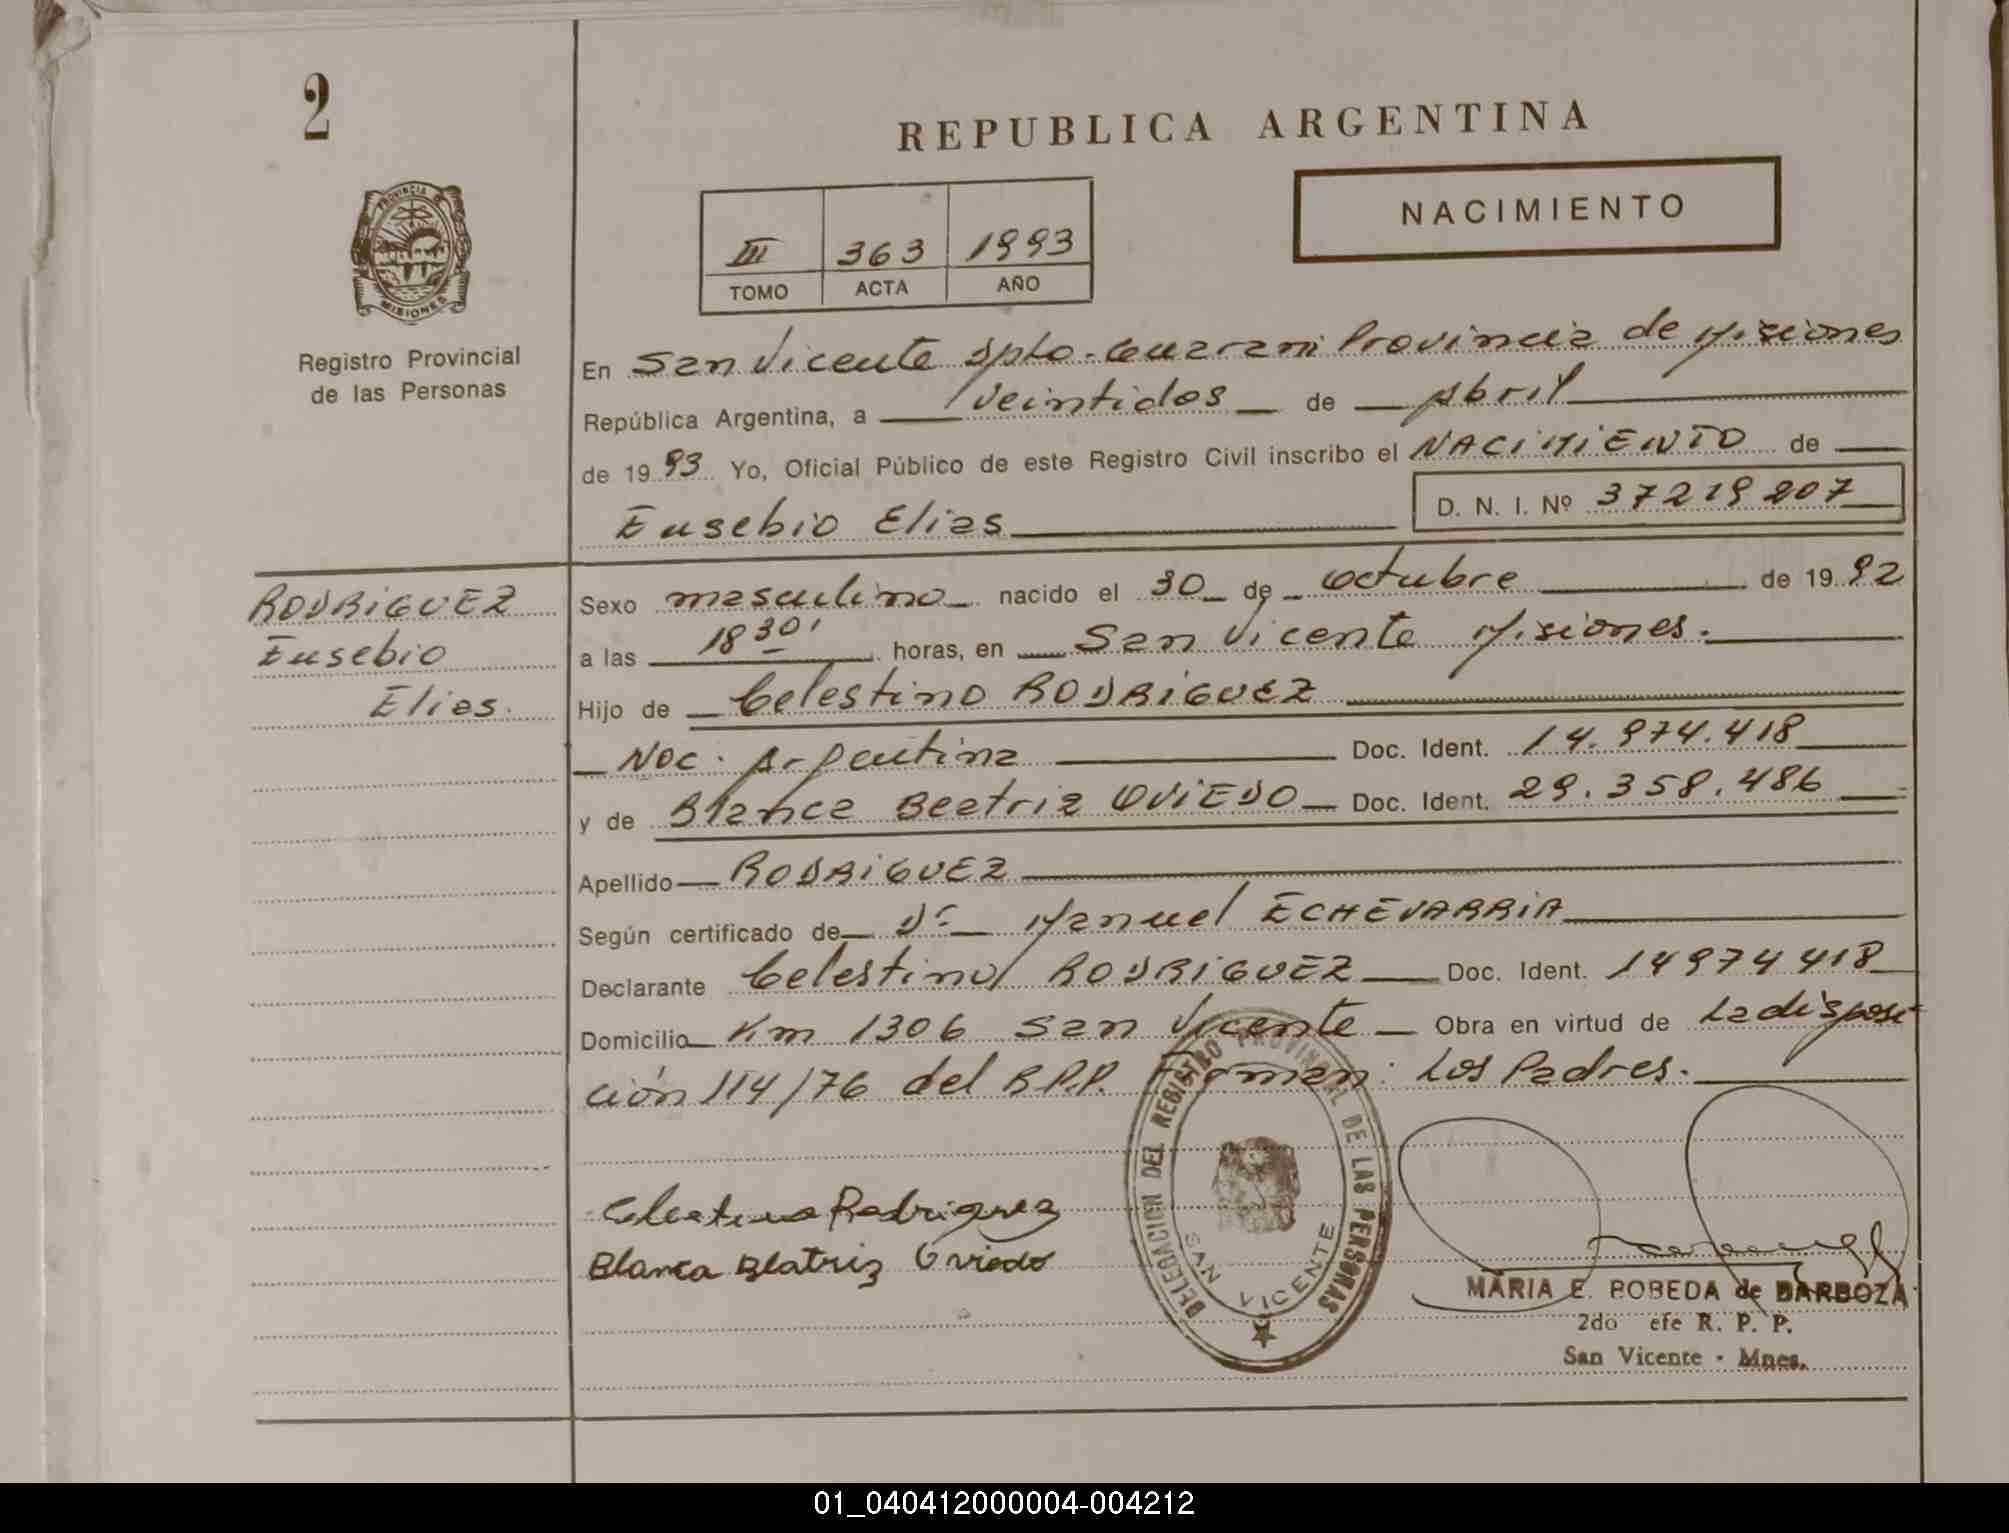 2
PROVINCIA
MISIONES
Registro Provincial
de las Personas
REPUBLICA ARGENTINA
NACIMIENTO
III 363 1993
TOMO ACTA AÑO
En San Vicente Dpto. Guarani Provincia de Misiones
República Argentina, a veintidos de Abril
de 1993 Yo, Oficial Público de este Registro Civil inscribo el NACIMIENTO de
Eusebio Elias D. N. I. Nº 37219207
RODRIGUEZ
Eusebio
Elias.
Sexo masculino nacido el 30 de octubre de 1992
a las 18 30' horas, en San Vicente Misiones.
Hijo de Celestino RODRIGUEZ
Nac. Argentina Doc. Ident. 14.974.418
y de Blanca Beatriz OVIEDO Doc. Ident. 29.358.486
Apellido RODRIGUEZ
Según certificado de Dr Manuel ECHEVARRIA
Declarante Celestino RODRIGUEZ Doc. Ident. 14974418
Domicilio Km 1306 San Vicente Obra en virtud de La disposi
ción 114/76 del R.P.P. Firman: Los Padres.
Celestino Rodriguez
Blanca Beatriz Oviedo
DELEGACION DEL REGISTRO PROVINCIAL DE LAS PERSONAS
SAN VICENTE
MARIA E. POBEDA de BARBOZA
2do efe R. P. P.
San Vicente - Mnes.
01_040412000004-004212